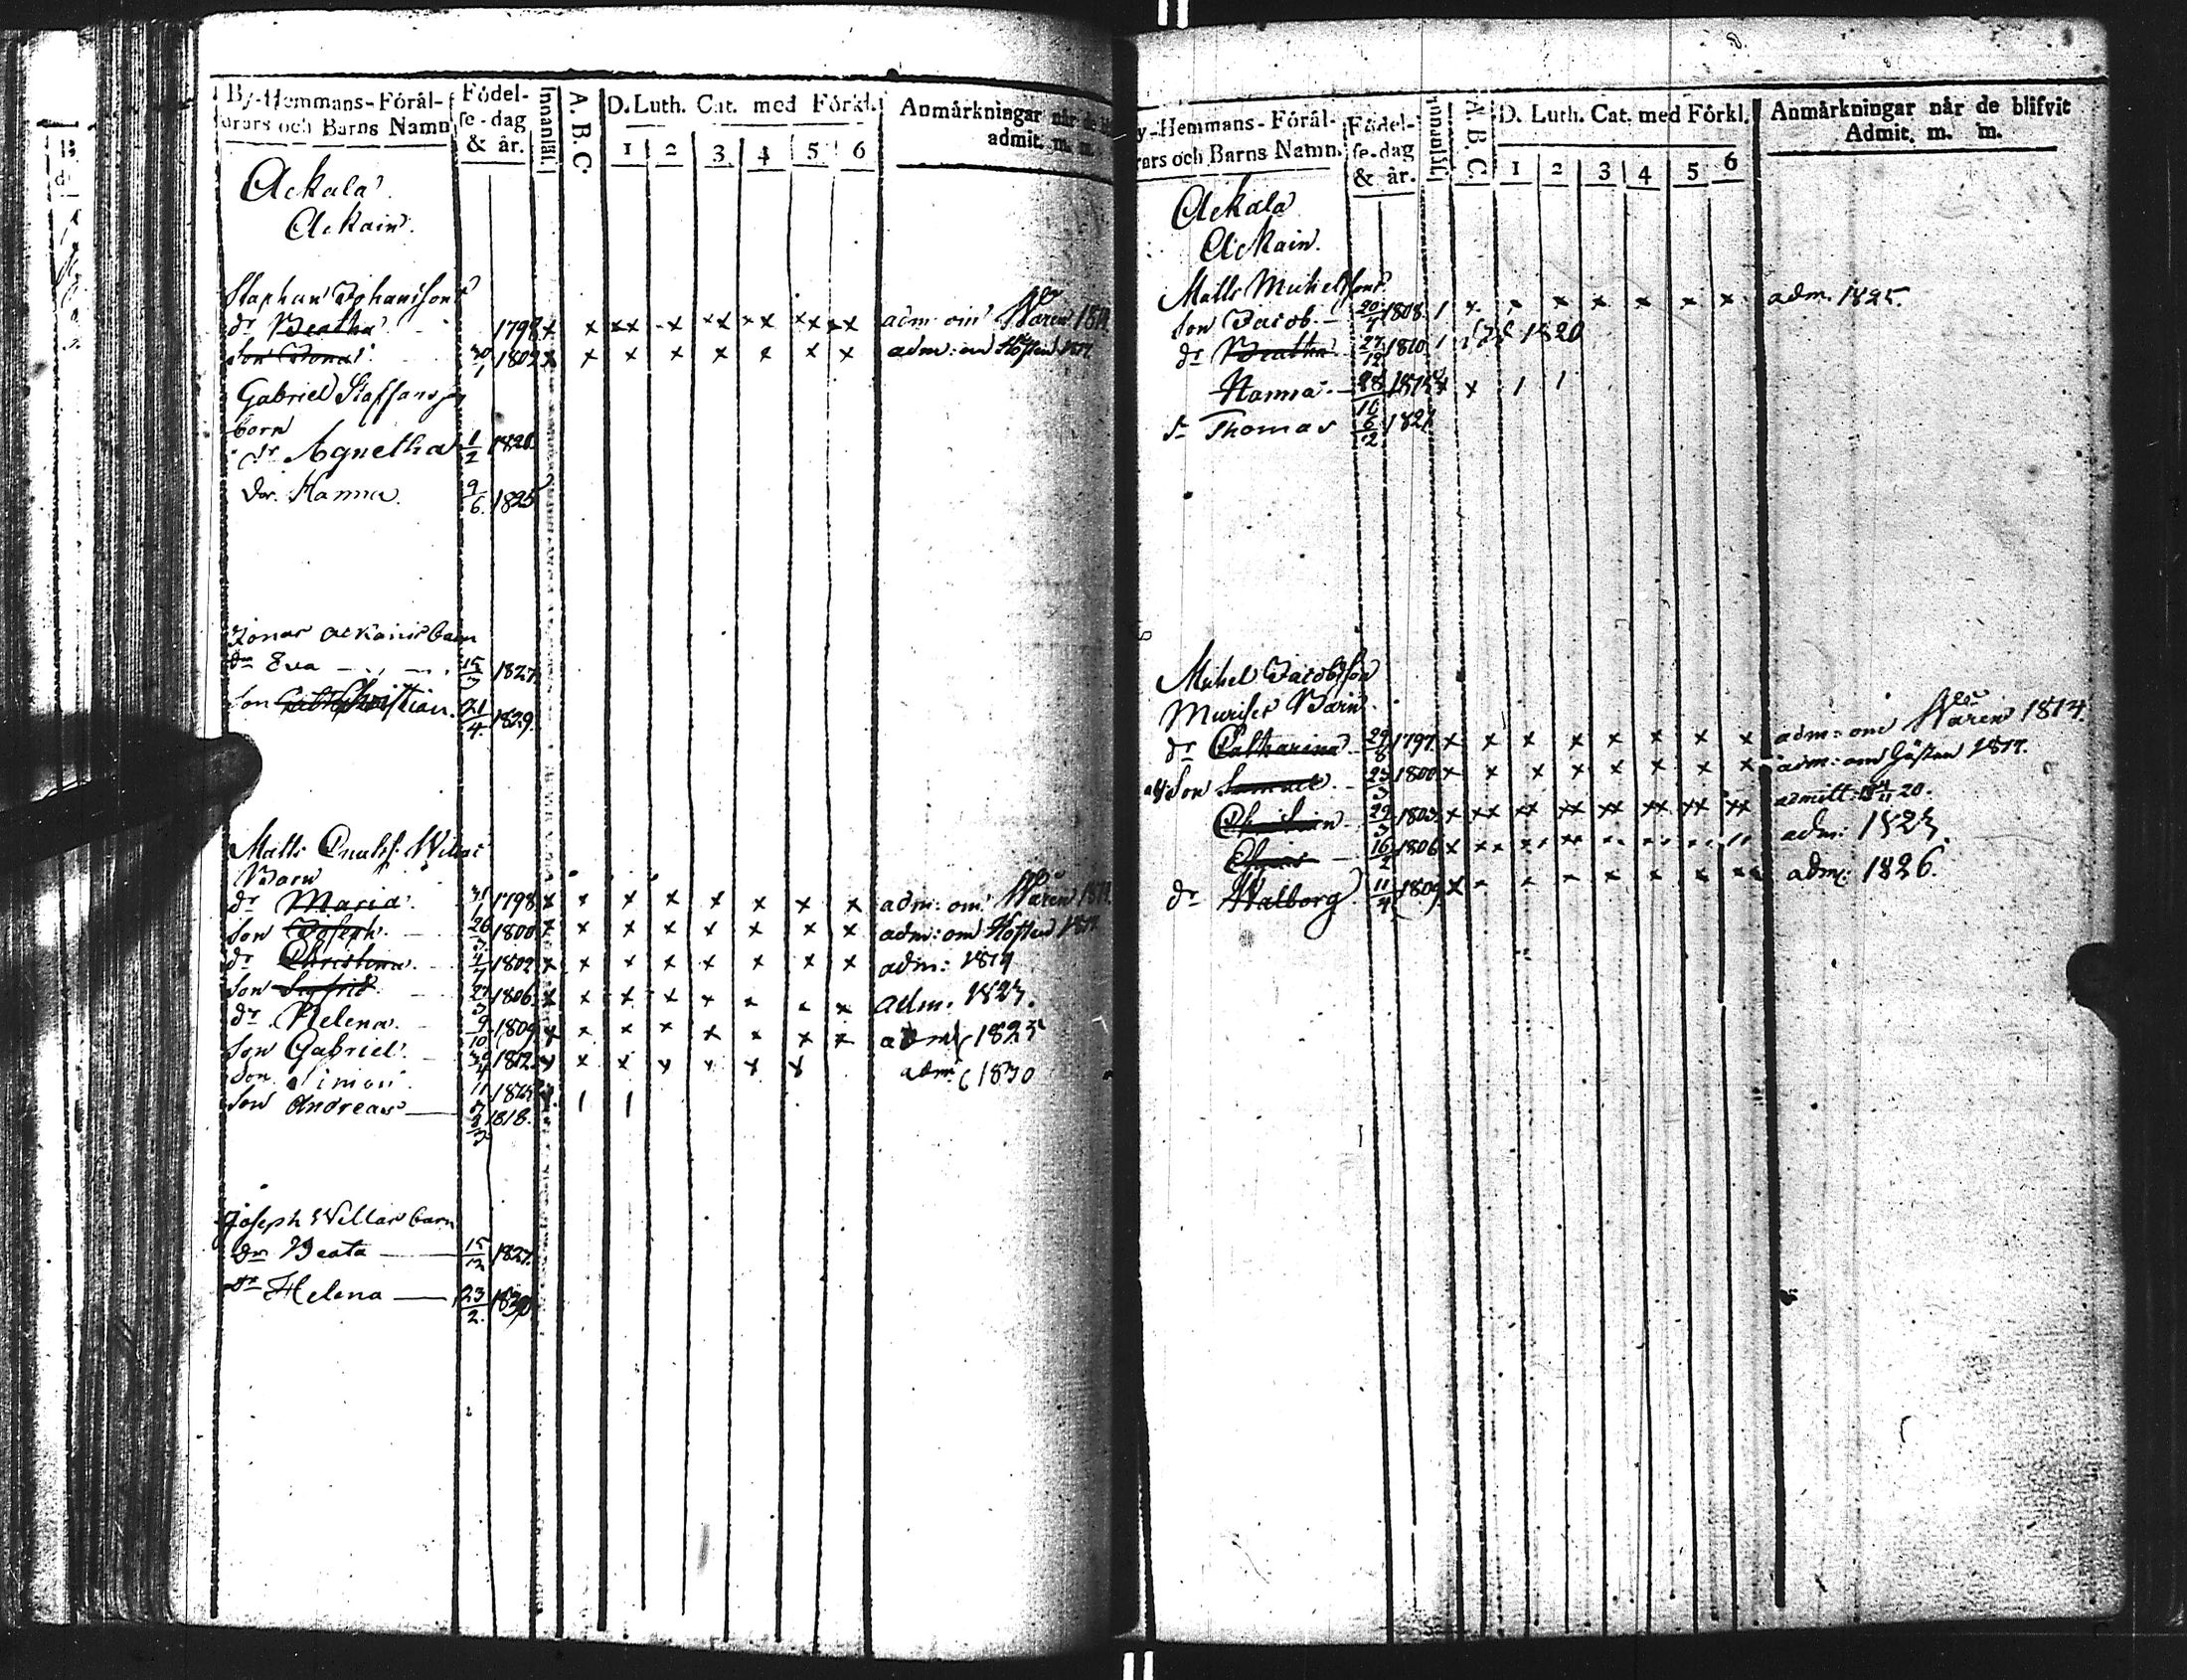 By-Hemmans-Förål-
drars och Barns Namn
Födel-
se-dag
& år.
Innanläs.
A. B. C.
D. Luth. Cat. med Förkl.
1 2 3 4 5 6
Anmärkningar når de
admit. m. m.
Ackala
Ackain.
Staphan Johansson
dr Beatha 1798 x x xx xx xx xx xx xx adm. om Våren
Son Jonas 30/1 1802 x x x x x x x x adm: om Hösten 1817
Gabriel Staffanss
born
dr Agnetha 1/2 1820
dr. Hanna 9/6. 1825
Jonas Ackains barn
dr Eva 15 1827.
Son Christian. 21/4 1829.
Matts Willas
Barn
dr Maria 31/1 1798 x x x x x x x x adm: om Våren
Son Joseph 26/3 1800 x x x x x x x x adm: om Hösten
dr Christina 4/7 1802 x x x x x x x x adm: 1819
Son Sigfrid 27/3 1806 x x x x x x x x adm. 1823.
dr Helena 9/10 1809 x x x x x x x x adm 1825
Son Gabriel 30/4 1812 x x x x x x x adm 1830
Son Simon 11
Son Andreas 1818. 1 1
Joseph Willas barn
dr Beata 15/12 1827.
dr Helena 23/2. 1830
By-Hemmans-Förål-
drars och Barns Namn.
Födel-
se-dag
& år.
Innanläs.
A. B. C.
D. Luth. Cat. med Förkl.
1 2 3 4 5 6
Anmärkningar når de blifvit
Admit. m. m.
Ackala
Ackain.
Matts Michelsson
Son Jacob 20/7 1808 1 x x x x x x x adm. 1825.
dr Beatha 27/12 1810 1 1820
Hanna 28/10 1815 x x 1 1
S. Thomas 6/12 1821
Michel Jacobsson
Murises Barn
dr Catharina 29/8 1797 x x x x x x x x adm: om Våren 1814.
Son Samuel 23/3 1800 x x x x x x x x adm: om Hösten 1817.
Christian 29/3 1803 x xx xx xx xx xx xx xx admitt: 20.
Elias 16 1806 x adm: 1823
dr Walborg 11/4 1809 x adm: 1826.